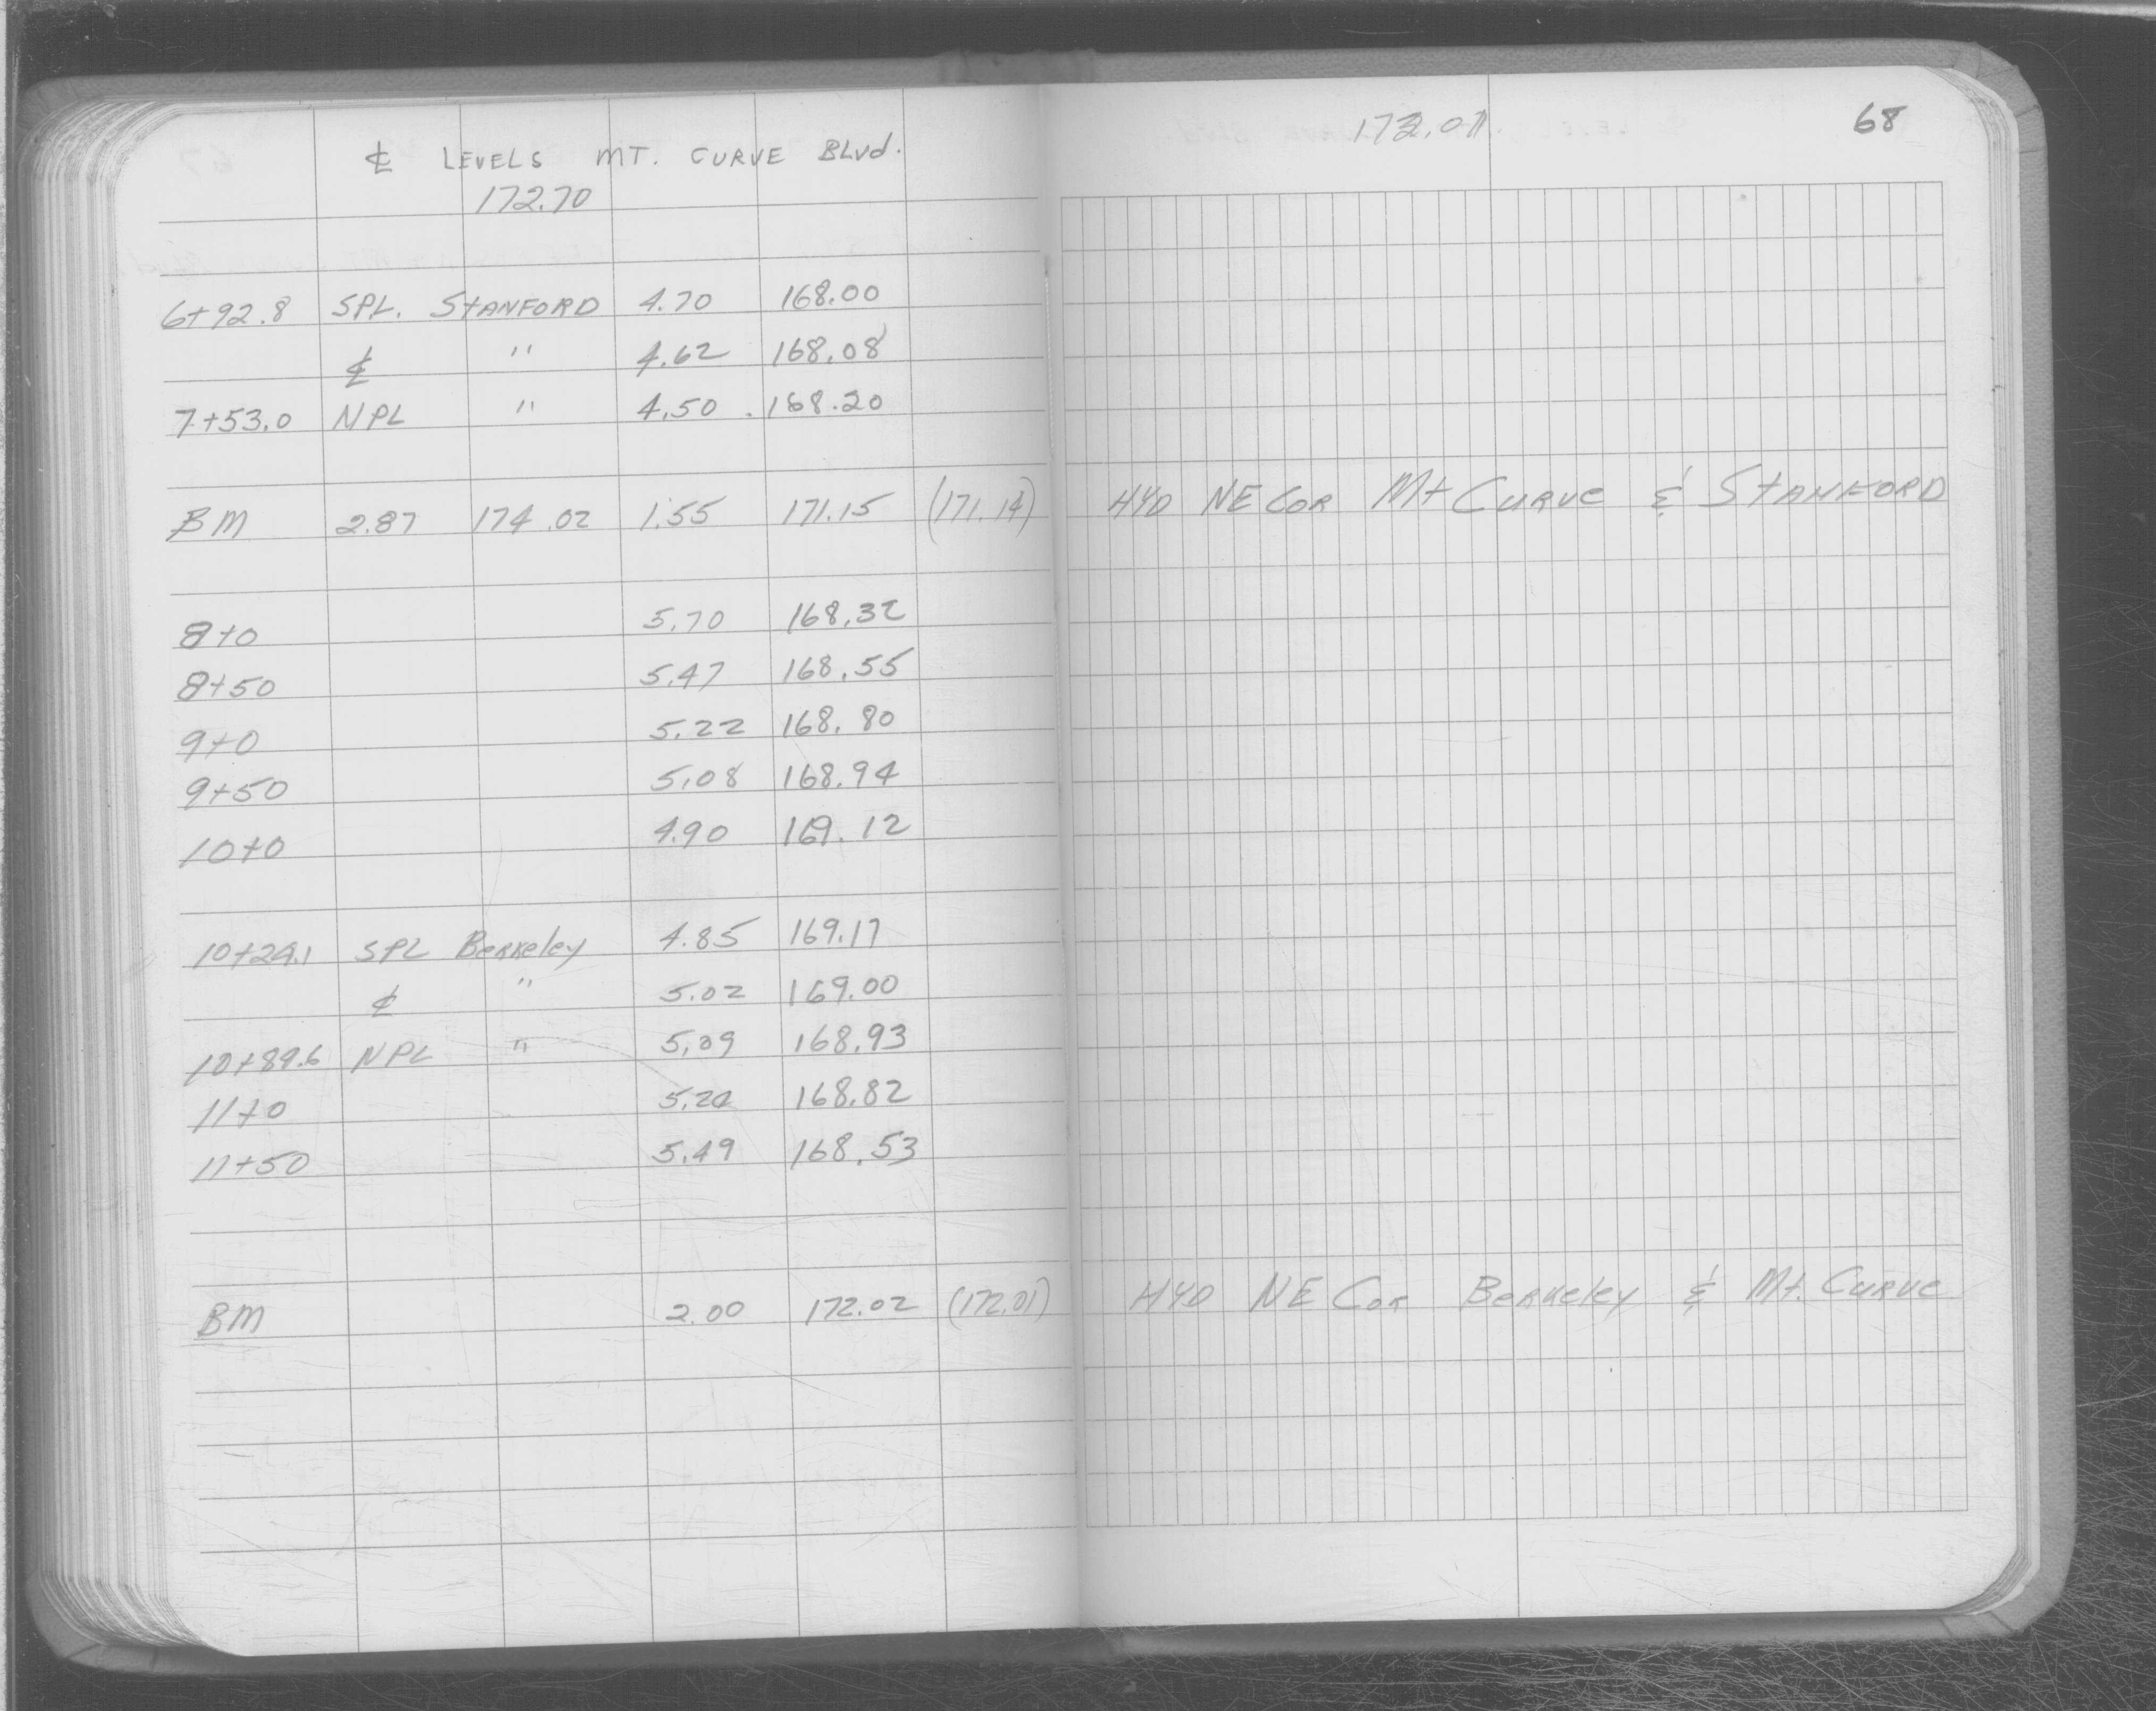 ℄ LEVELS MT. CURVE BLVD.
172.70
6+92.8 SPL. STANFORD 4.70 168.00
℄ " 4.62 168.08
7+53.0 NPL " 4.50 168.20
BM 2.87 174.02 1.55 171.15 (171.14)
8+0 5.70 168.32
8+50 5.47 168.55
9+0 5.22 168.80
9+50 5.08 168.94
10+0 4.90 169.12
10+24.1 SPL Berkeley 4.85 169.17
℄ " 5.02 169.00
10+89.6 NPL " 5.09 168.93
11+0 5.20 168.82
11+50 5.49 168.53
BM 2.00 172.02 (172.01)
172.01
68
HYD NE COR Mt CURVE & STANFORD
HYD NE COR Berkeley & Mt. CURVE